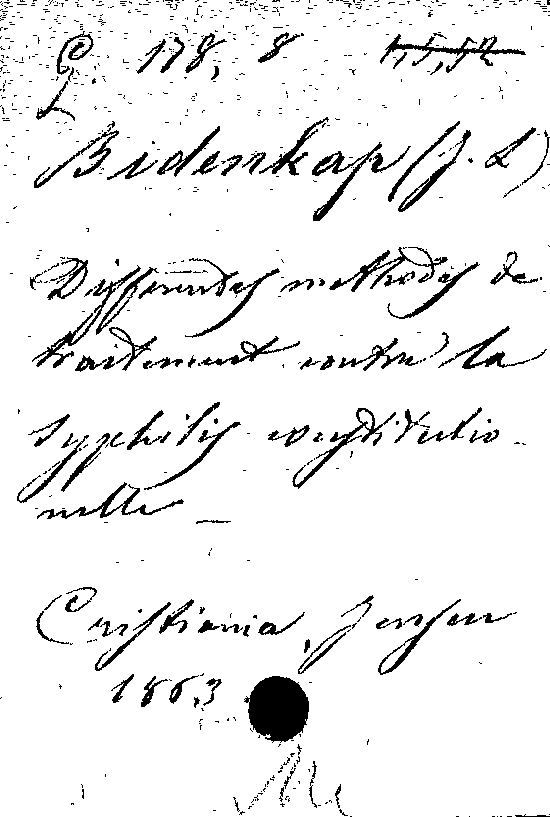 178, 8 1,5,52
Bidenkap (J. L)
Differentes methodes de
traitement contre la
syphilis constitutio-
nelle _
Cristiania, Jensen
1863